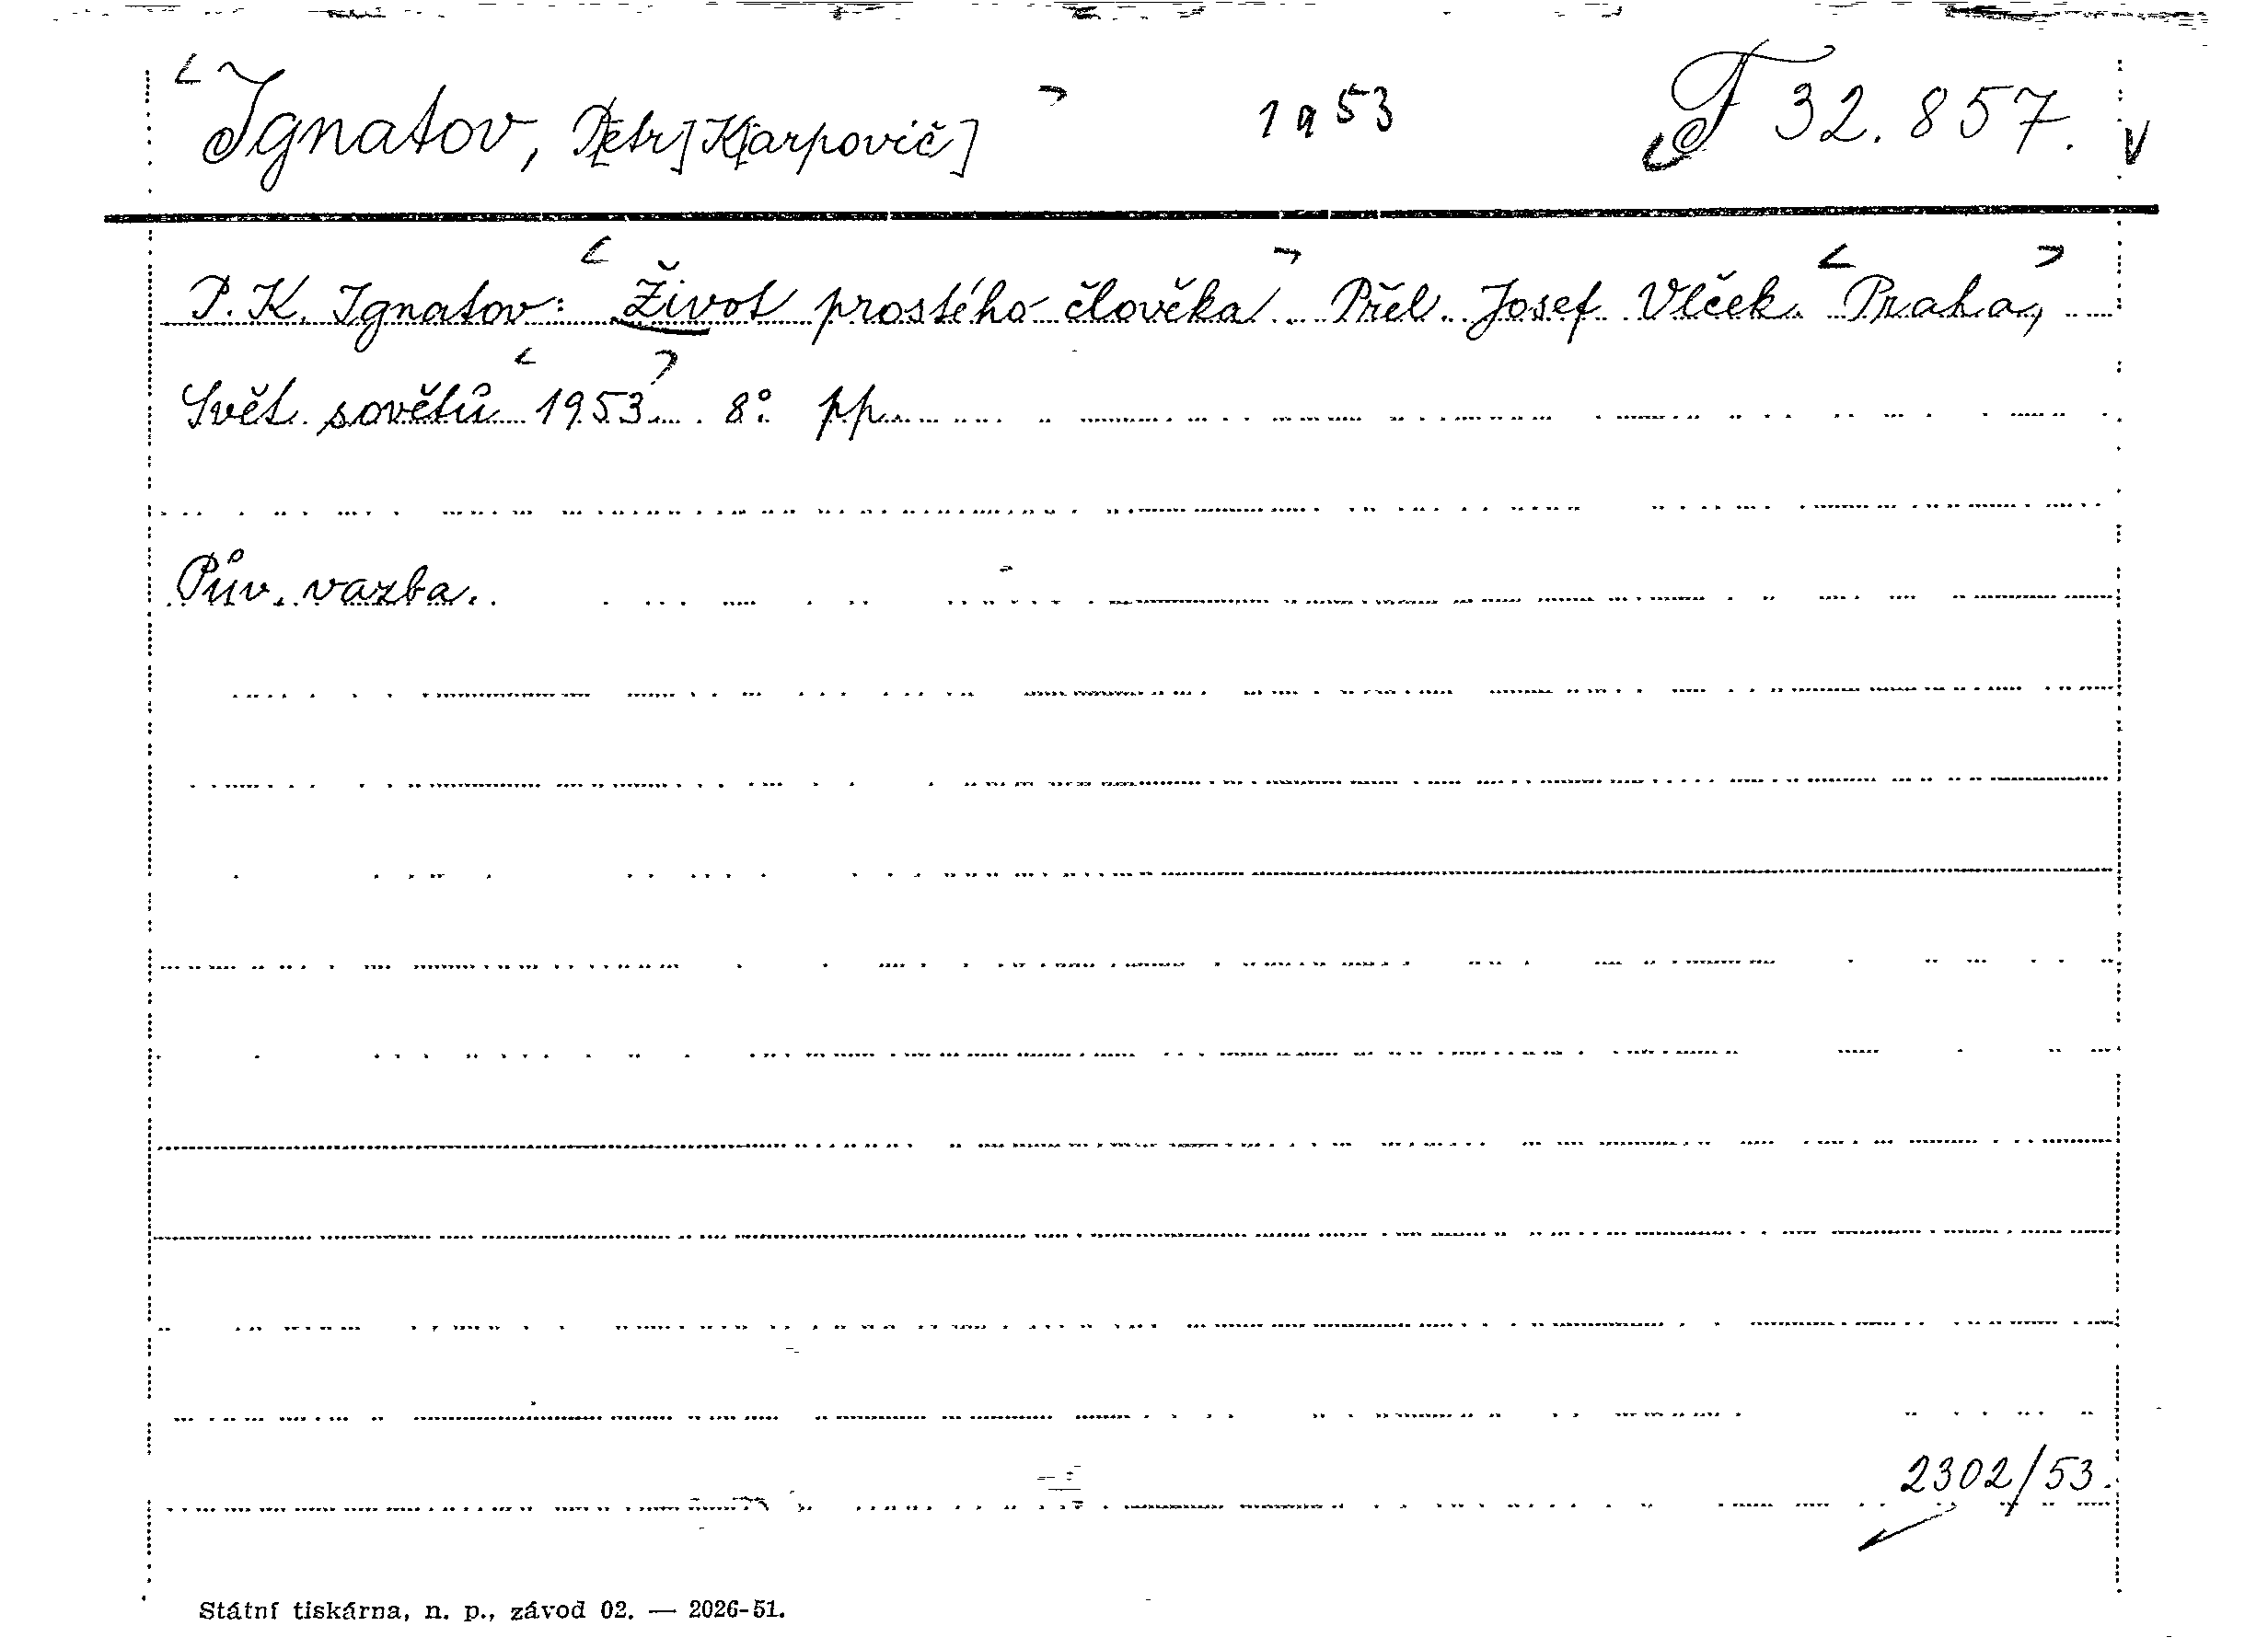 Ignatov, P[etr] K[arpovič] 1953 F 32.857.
P. K. Ignatov: Život prostého člověka. Přel. Josef Vlček. Praha,
Svět sovětů 1953. 8°. pp.
Pův. vazba.
2302/53.
Státní tiskárna, n. p., závod 02. — 2026-51.